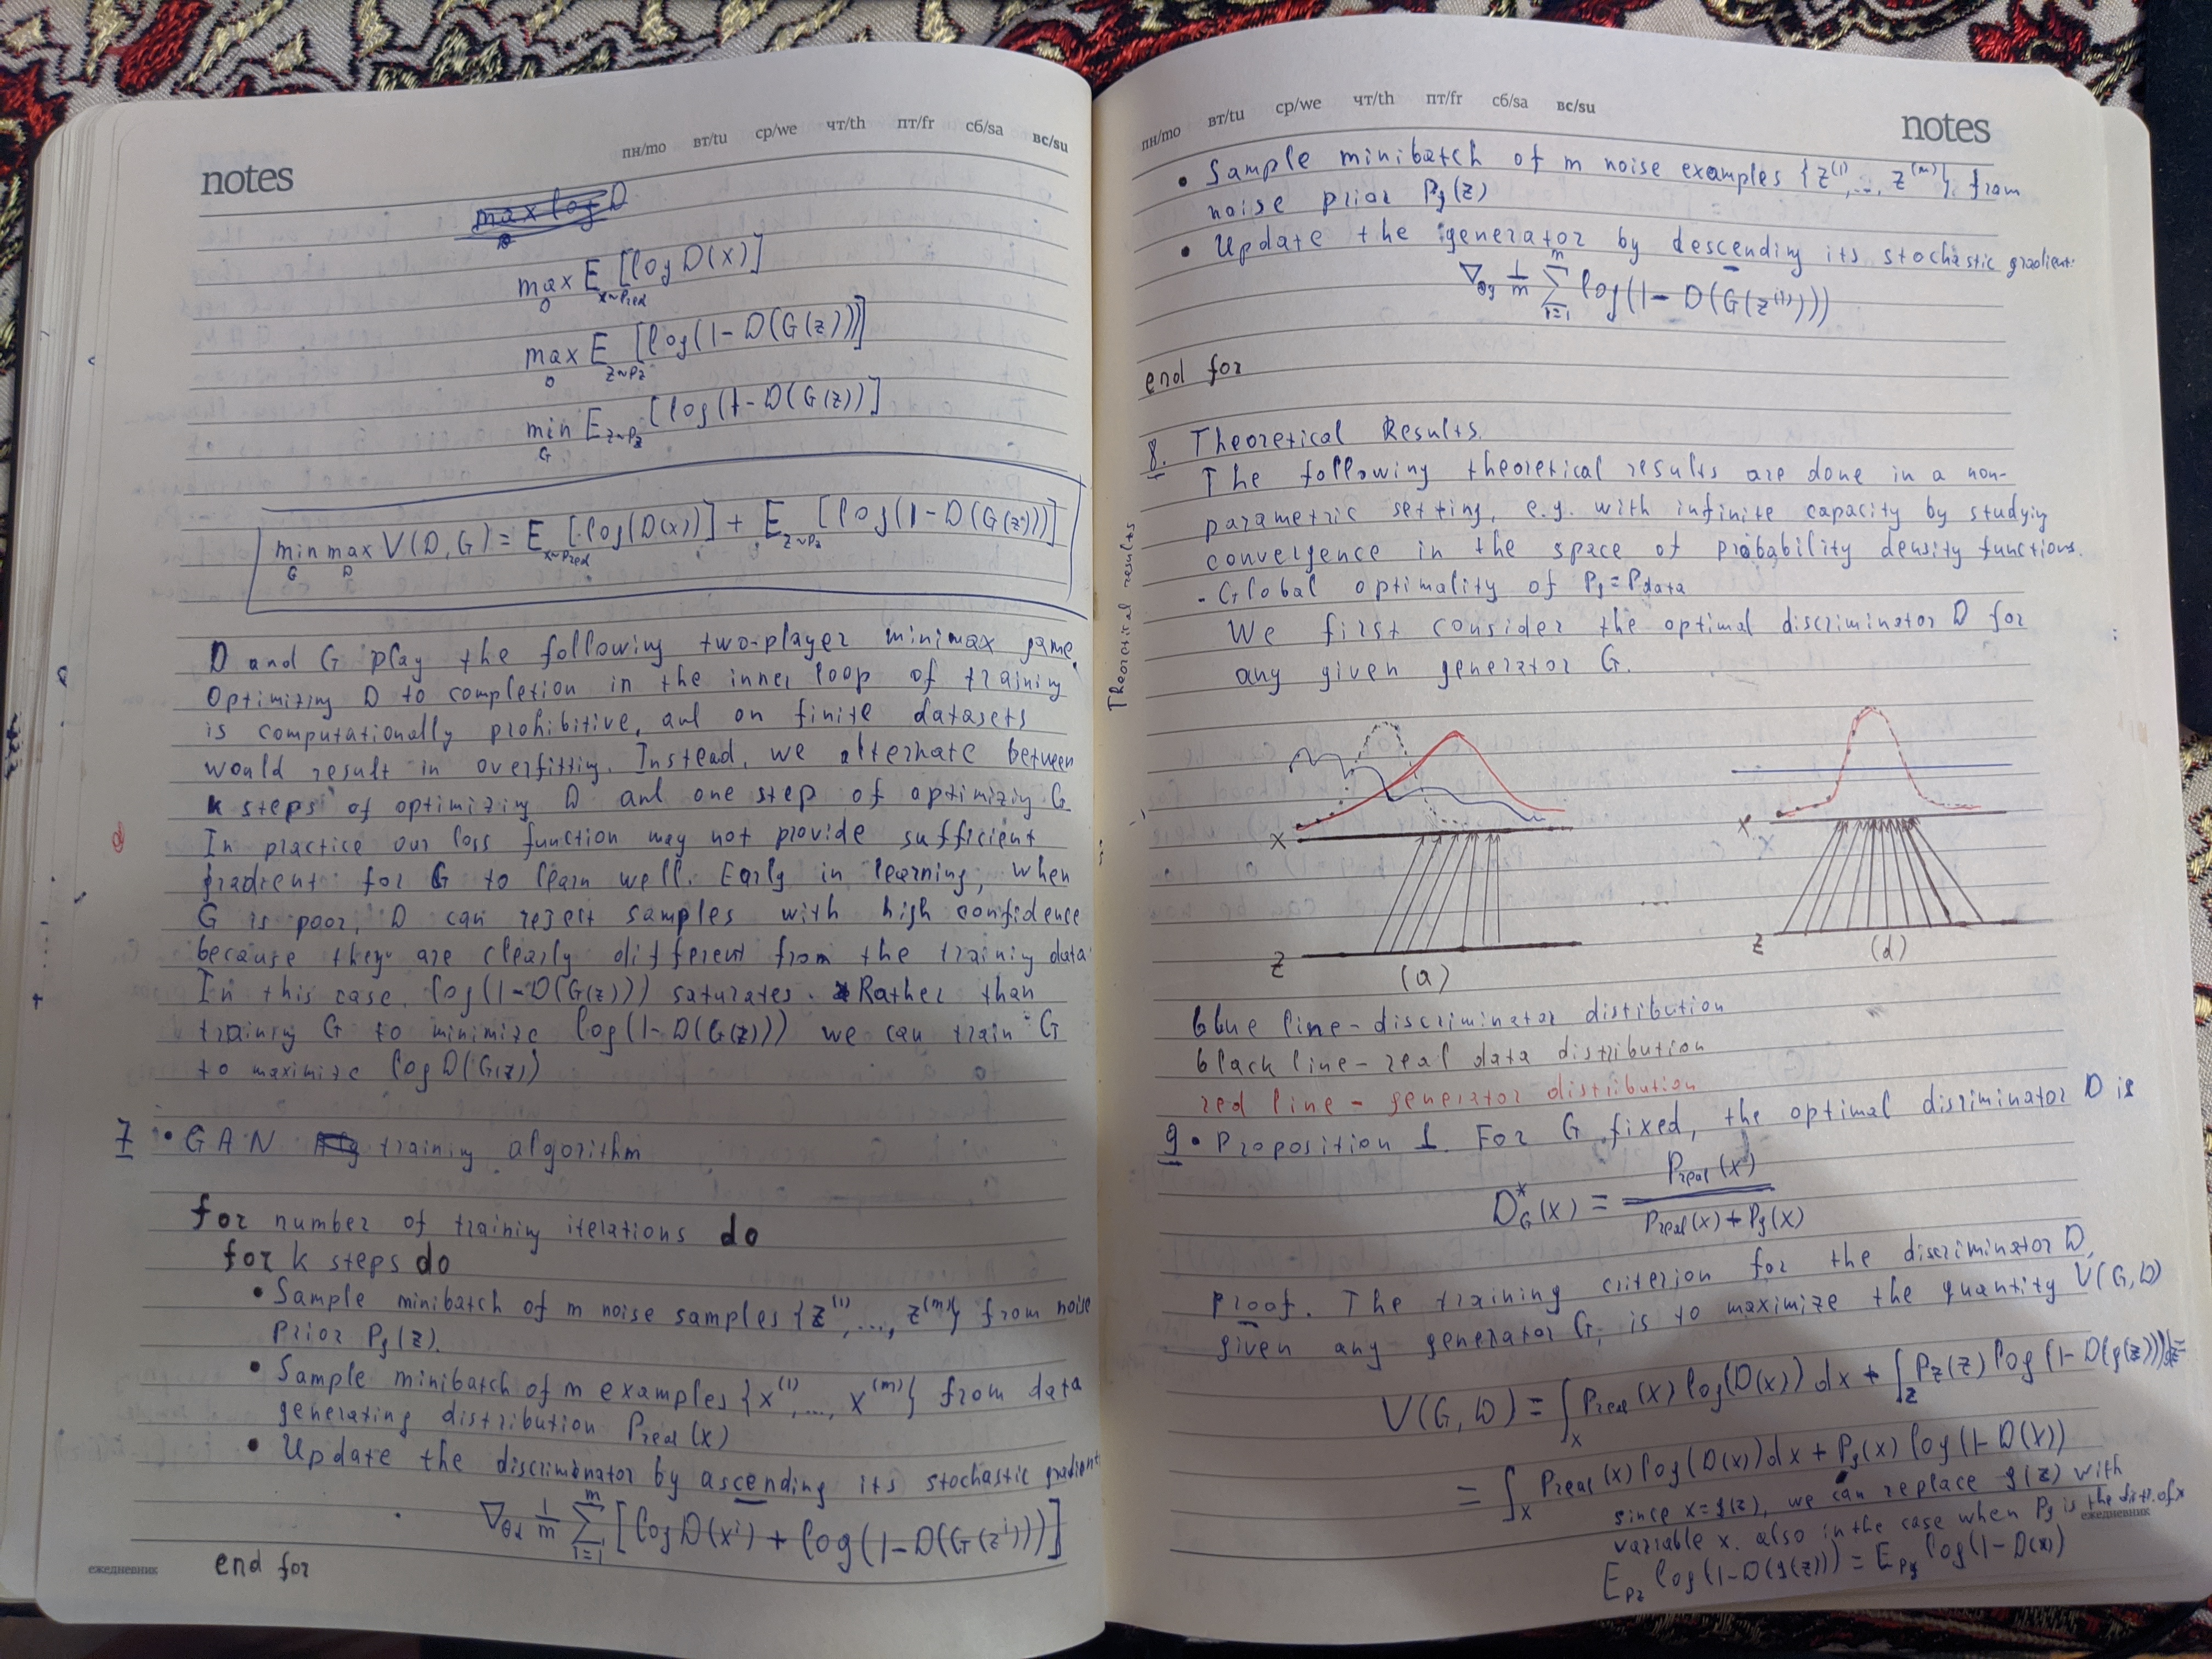 notes
пн/mo вт/tu ср/we чт/th пт/fr сб/sa вс/su
max log D
D
max E [log D(x)]
D x~Preal
max E [log(1-D(G(z)))]
D z~Pz
min E z~Pz [log(1-D(G(z))]
G
min max V(D,G) = E [log(D(x))] + E [log(1-D(G(z)))]
G D x~Preal z~Pz
D and G play the following two-player minimax game.
Optimizing D to completion in the inner loop of training
is computationally prohibitive, and on finite datasets
would result in overfitting. Instead, we alternate between
k steps of optimizing D and one step of optimiziy G
In practice our loss function may not provide sufficient
gradient for G to learn well. Early in learning, when
G is poor, D can reject samples with high confidence
because they are clearly different from the trainiy data
In this case, log(1-D(G(z))) saturates. Rather than
trainiy G to minimize log(1-D(G(z))) we can train G
to maximize log D(G(z))
7 • GAN Alg training algorithm
for number of training iterations do
for k steps do
• Sample minibatch of m noise samples {z⁽¹⁾,..., z⁽ᵐ⁾} from noise
prior Pg(z).
• Sample minibatch of m examples {x⁽¹⁾,..., x⁽ᵐ⁾} from data
generating distribution Preal(x)
• Update the discriminator by ascending its stochastic gradient
∇θd 1/m Σ i=1 m [log D(xⁱ) + log(1-D(G(zⁱ)))]
end for
ежедневник
пн/mo вт/tu ср/we чт/th пт/fr сб/sa вс/su
notes
• Sample minibatch of m noise examples {z⁽¹⁾,..., z⁽ᵐ⁾} from
noise prior Pg(z)
• Update the generator by descending its stochastic gradient:
∇θg 1/m Σ i=1 m log(1-D(G(z⁽ⁱ⁾)))
end for
8. Theoretical Results.
The following theoretical results are done in a non-
parametric setting, e.g. with infinite capacity by studyiy
convergence in the space of probability density functions.
- Global optimality of Pg = Pdata
We first consider the optimal discriminator D for
any given generator G.
Theoretical results
x
z
(a)
x
x
z
(d)
blue line - discriminator distribution
black line - real data distribution
red line - generator distribution
9 • Proposition 1. For G fixed, the optimal disriminator D is
D*G(x) = Preal(x) / Preal(x) + Pg(x)
proof. The training criterion for the discriminator D,
given any generator G, is to maximize the quantity V(G,D)
V(G,D) = ∫x Preal(x) log(D(x)) dx + ∫z Pz(z) log(1-D(g(z)))dz =
= ∫x Preal(x) log(D(x)) dx + Pg(x) log(1-D(x))
since x=g(z), we can replace g(z) with
variable x. also in the case when Pg is the distr. of x
E Pz log(1-D(g(z))) = E Pg log(1-D(x))
ежедневник